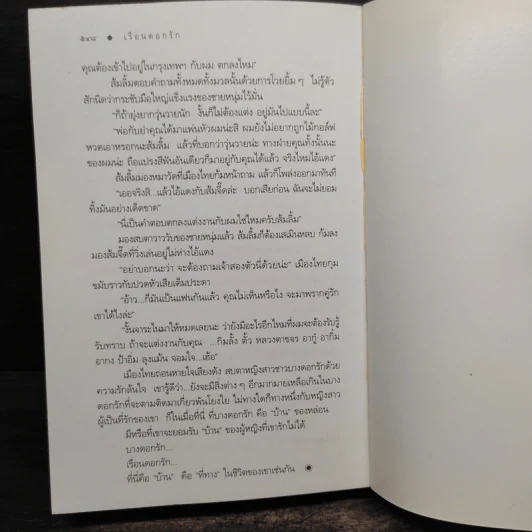 ๕๔๘ ● เรือนดอกรัก
คุณต้องเข้าไปอยู่ในกรุงเทพฯ กับผม ตกลงไหม"
ส้มลิ้มตอบคำถามทั้งหมดทั้งมวลนั้นด้วยการโวยอื้ม ๆ ไม่รู้ตัว
สักนิดว่ากระชับมือใหญ่แข็งแรงของชายหนุ่มไว้มั่น
"ก็ถ้ายุ่งยากวุ่นวายนัก งั้นก็ไม่ต้องแต่ง อยู่มันไปแบบนี้ละ"
"พ่อกับย่าคุณได้มาแพ่นหัวผมน่ะสิ ผมยังไม่อยากถูกไม้กอล์ฟ
หวดเอาหรอกนะส้มลิ้ม แล้วที่บอกว่าวุ่นวายน่ะ ทางฝ่ายคุณทั้งนั้นนะ
ของผมน่ะ ถือแปรงสีฟันอันเดียวก็มาอยู่กับคุณได้แล้ว จริงไหมไอ้แดง"
ส้มลิ้มมองหมาวัดที่เมืองไทยก้มหน้าถาม แล้วก็โพล่งออกมาทันที
"เออจริงสิ...แล้วไอ้แดงกับส้มจี๊ดล่ะ บอกเสียก่อน ฉันจะไม่ยอม
ทิ้งมันอย่างเด็ดขาด"
"นี่เป็นคำตอบตกลงแต่งงานกับผมใช่ไหมครับส้มลิ้ม"
มองสบตาวาววับของชายหนุ่มแล้ว ส้มลิ้มก็ต้องเสเมินหลบ ก้มลง
มองส้มจี๊ดที่วิ่งเล่นอยู่ไม่ห่างไอ้แดง
"อย่าบอกนะว่า จะต้องถามเจ้าสองตัวนี่ด้วยน่ะ" เมืองไทยกุม
ขมับราวกับปวดหัวเสียเต็มประดา
"อ้าว...ก็มันเป็นแฟนกันแล้ว คุณไม่เห็นหรือไง จะมาพรากคู่รัก
เขาได้ไงล่ะ"
"งั้นจาระไนมาให้หมดเลยนะ ว่ายังมีอะไรอีกไหมที่ผมจะต้องรับรู้
รับทราบ ถ้าจะแต่งงานกับคุณ ...กิมลั้ง ตั้ว หลวงตาขจร อากู๋ อากิ๋ม
อากง ป้าอิ่ม ลุงแม้น จอมใจ...เฮ้อ"
เมืองไทยถอนหายใจเสียงดัง สบตาหญิงสาวชาวบางดอกรักด้วย
ความรักล้นใจ เขารู้ดีว่า...ยังจะมีสิ่งต่าง ๆ อีกมากมายเหลือเกินในบาง
ดอกรักที่จะตามติดมาเกี่ยวพันโยงใย ไม่ทางใดก็ทางหนึ่งกับหญิงสาว
ผู้เป็นที่รักของเขา ก็ในเมื่อที่นี่ ที่บางดอกรัก คือ "บ้าน" ของหล่อน
มีหรือที่เขาจะยอมรับ "บ้าน" ของผู้หญิงที่เขารักไม่ได้
บางดอกรัก...
เรือนดอกรัก...
ที่นี่คือ "บ้าน" คือ "ที่ทาง" ในชีวิตของเขาเช่นกัน ●